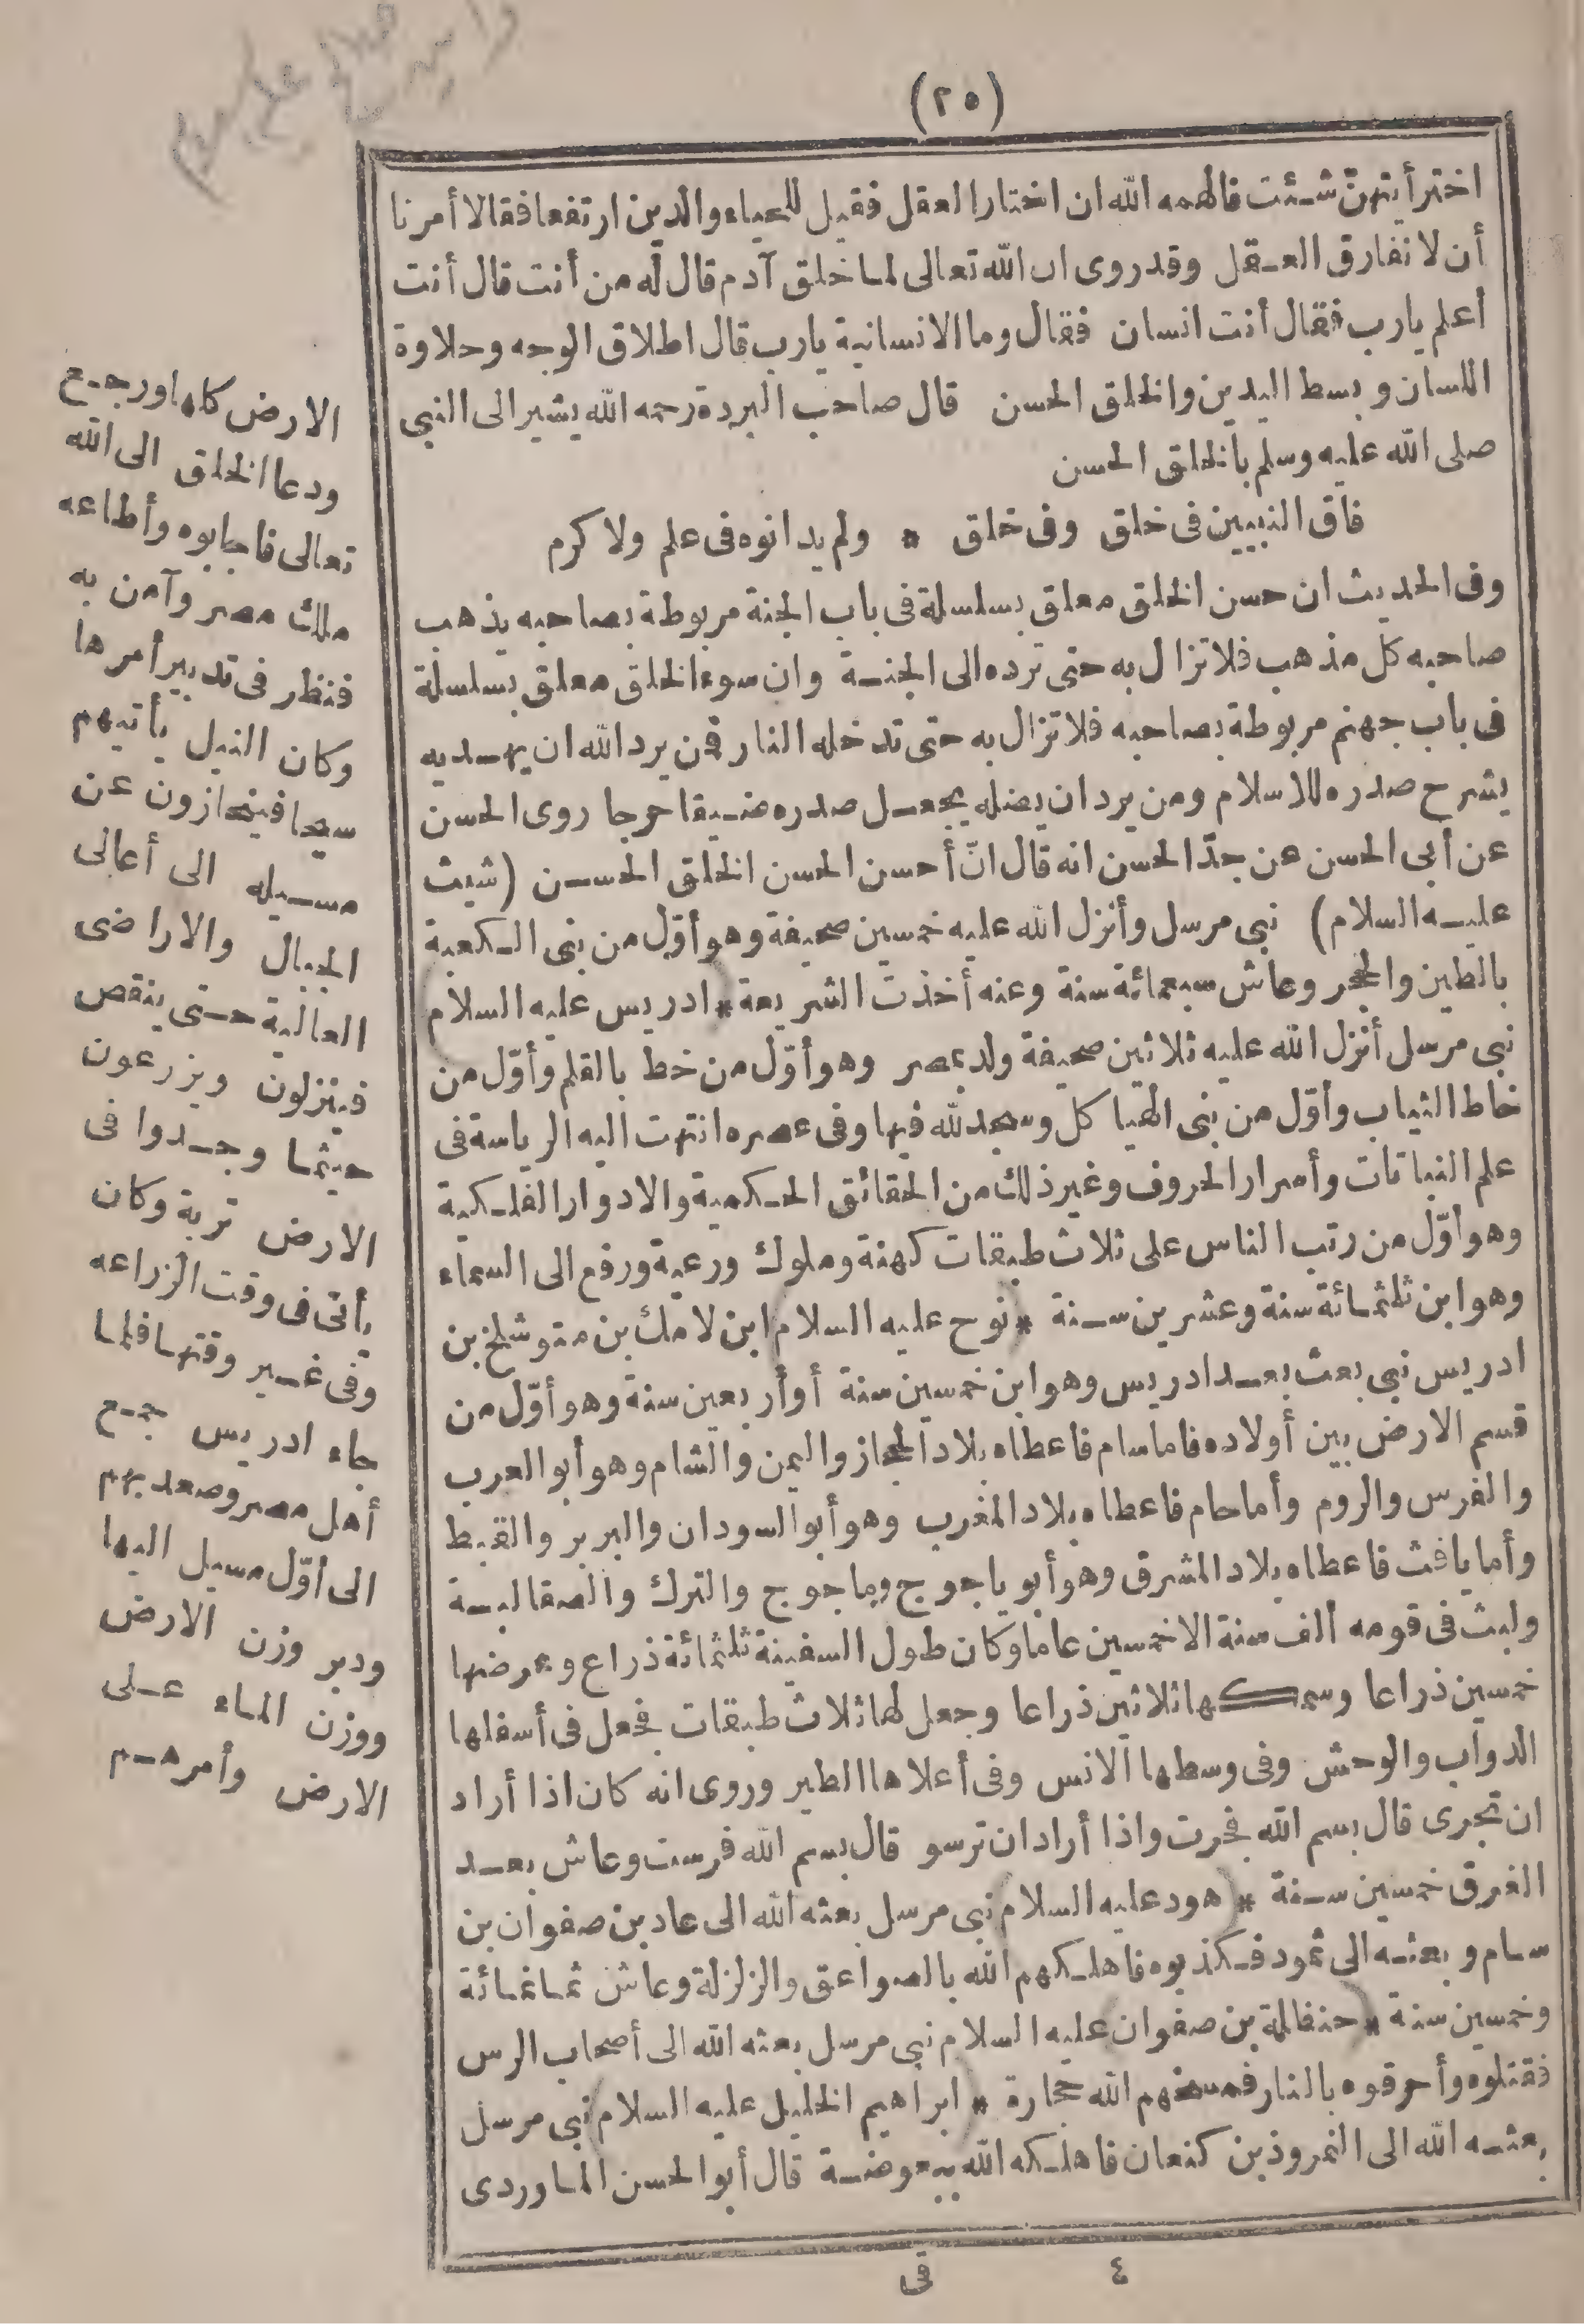 (٢٥)
اختر أيتهنّ شئت فالهمه الله ان اختار العقل فقيل للحياء والدين ارتفعا فقالا أمرنا
أن لا نفارق العقل وقد روى ان الله تعالى لما خلق آدم قال له من أنت قال أنت
أعلم يارب فقال أنت انسان فقال وما الانسانية يارب قال اطلاق الوجه وحلاوة
اللسان وبسط اليدين والخلق الحسن قال صاحب البردة رحمه الله يشير الى النبي
صلى الله عليه وسلم بالخلق الحسن
فاق النبيين فى خلق وفى خلق * ولم يدانوه فى علم ولا كرم
وفى الحديث ان حسن الخلق معلق بسلسلة فى باب الجنة مربوطة بصاحبه يذهب
صاحبه كل مذهب فلا تزال به حتى ترده الى الجنة وان سوء الخلق معلق بسلسلة
فى باب جهنم مربوطة بصاحبه فلا تزال به حتى تدخله النار فمن يرد الله ان يهديه
يشرح صدره للاسلام ومن يرد ان يضله يجعل صدره ضيقا حرجا روى الحسن
عن أبى الحسن عن جدّ الحسن انه قال انّ أحسن الحسن الخلق الحسن (شيث
عليه السلام) نبى مرسل وأنزل الله عليه خمسين صحيفة وهو أوّل من بنى الكعبة
بالطين والحجر وعاش سبعمائة سنة وعنه أخذت الشريعة * ادريس عليه السلام
نبى مرسل أنزل الله عليه ثلاثين صحيفة ولد بمصر وهو أوّل من خط بالقلم وأوّل من
خاط الثياب وأوّل من بنى الهياكل وسجد لله فيها وفى عصره انتهت اليه الرياسة فى
علم النباتات وأسرار الحروف وغير ذلك من الحقائق الحكمية والادوار الفلكية
وهو أوّل من رتب الناس على ثلاث طبقات كهنة وملوك ورعية ورفع الى السماء
وهو ابن ثلثمائة سنة وعشرين سنة * نوح عليه السلام ابن لامك بن متوشلخ بن
ادريس نبى بعث بعد ادريس وهو ابن خمسين سنة أو أربعين سنة وهو أوّل من
قسم الارض بين أولاده فاما سام فاعطاه بلاد الحجاز واليمن والشام وهو أبو العرب
والفرس والروم وأما حام فاعطاه بلاد المغرب وهو أبو السودان والبربر والقبط
وأما يافث فاعطاه بلاد المشرق وهو أبو ياجوج وماجوج والترك والصقالبة
ولبث فى قومه ألف سنة الا خمسين عاما وكان طول السفينة ثلثمائة ذراع وعرضها
خمسين ذراعا وسمكها ثلاثين ذراعا وجعل لها ثلاث طبقات فجعل فى أسفلها
الدواب والوحش وفى وسطها الانس وفى أعلاها الطير وروى انه كان اذا أراد
ان تجرى قال بسم الله فجرت واذا أراد ان ترسو قال بسم الله فرست وعاش بعد
الغرق خمسين سنة * هود عليه السلام نبى مرسل بعثه الله الى عاد بن صفوان بن
سام وبعثه الى ثمود فكذبوه فاهلكهم الله بالصواعق والزلزلة وعاش ثمانمائة
وخمسين سنة * حنظلة بن صفوان عليه السلام نبى مرسل بعثه الله الى أصحاب الرس
فقتلوه وأحرقوه بالنار فمسخهم الله حجارة * ابراهيم الخليل عليه السلام نبى مرسل
بعثه الله الى النمروذ بن كنعان فاهلكه الله ببعوضة قال أبو الحسن الماوردى
الارض كلها ورجع
ودعا الخلق الى الله
تعالى فاجابوه وأطاعه
ملك مصر وآمن به
فنظر فى تدبير أمرها
وكان النيل يأتيهم
سيحا فينحازون عن
مسيله الى أعالى
الجبال والاراضى
العالية حتى ينقص
فينزلون ويزرعون
حيثما وجدوا فى
الارض تربة وكان
يأتى فى وقت الزراعه
وفى غير وقتها فلما
جاء ادريس جمع
أهل مصر وصعد بهم
الى أوّل مسيل اليها
ودبر وزن الارض
ووزن الماء على
الارض وأمرهم
٤ فى